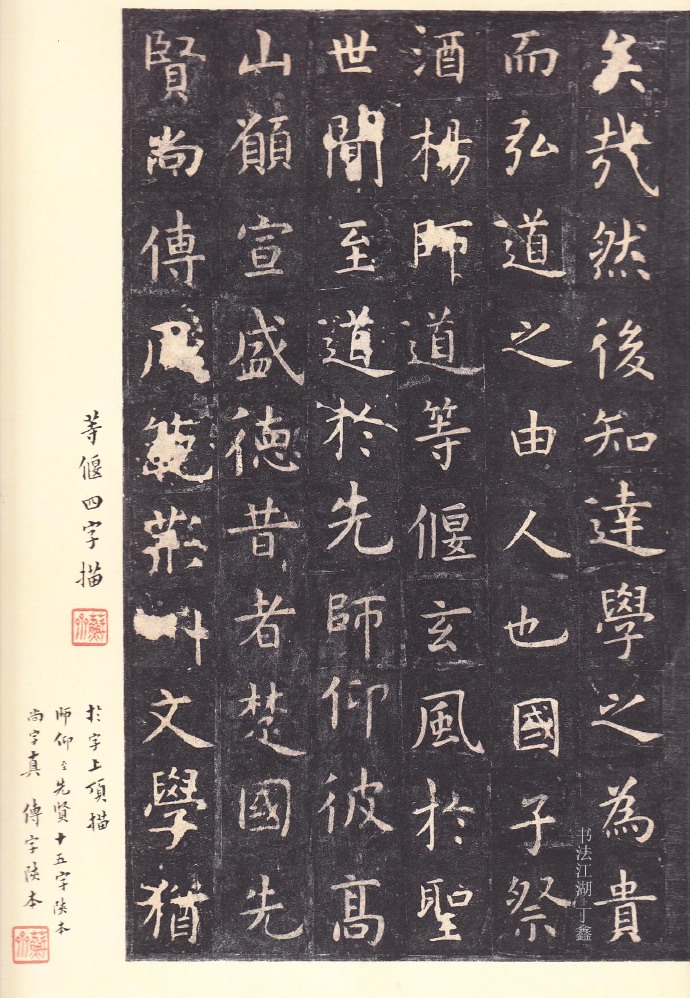 矣哉然後知達學之為貴
而弘道之由人也國子祭
酒楊師道等偃玄風於聖
世聞至道於先師仰彼高
山願宣盛徳昔者楚國先
賢尚傳風範荊州文學猶
等偃四字描
於字上頂描
師仰至先賢十五字陝本
尚字真 傳字陝本
书法江湖 丁鑫